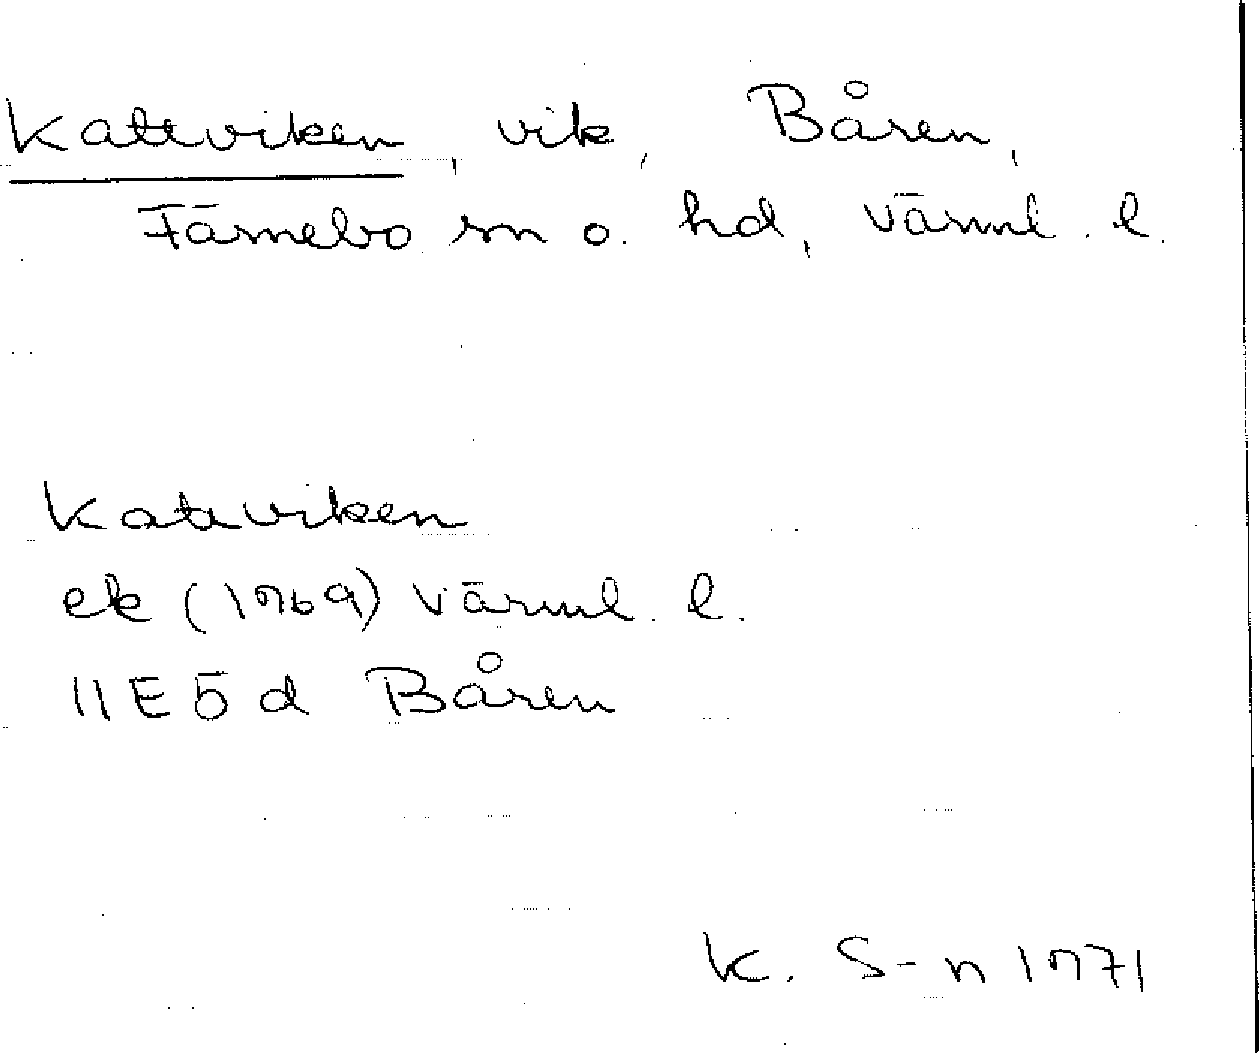 Kattviken, vik, Båren,
Färnebo sn o. hd, Värml. l.
Kattviken
ek (1969) Värml. l.
11E5d Båren
K. S-n 1971